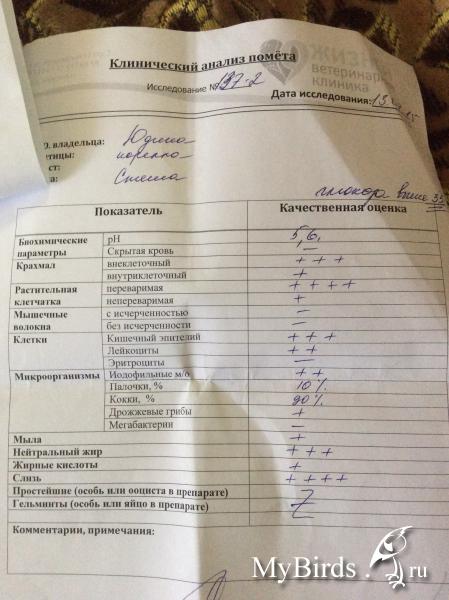 Клинический анализ помёта
ветеринарная
клиника
Исследование № 137-2
Дата исследования: 13
владельца: Юдина
тицы: корелла
ст:
а: Стеша
глюкоза выше 35
Показатель Качественная оценка
Биохимические параметры pH 5,6,
Скрытая кровь —
Крахмал внеклеточный + + +
внутриклеточный +
Растительная клетчатка переваримая + + + +
непереваримая +
Мышечные волокна с исчерченностью —
без исчерченности —
Клетки Кишечный эпителий + + +
Лейкоциты + +
Эритроциты —
Микроорганизмы Иодофильные м/о + +
Палочки, % 10%
Кокки, % 90%
Дрожжевые грибы +
Мегабактерии —
Мыла +
Нейтральный жир + + +
Жирные кислоты +
Слизь + + + +
Простейшие (особь или ооциста в препарате)
Гельминты (особь или яйцо в препарате)
Комментарии, примечания:
MyBirds.ru